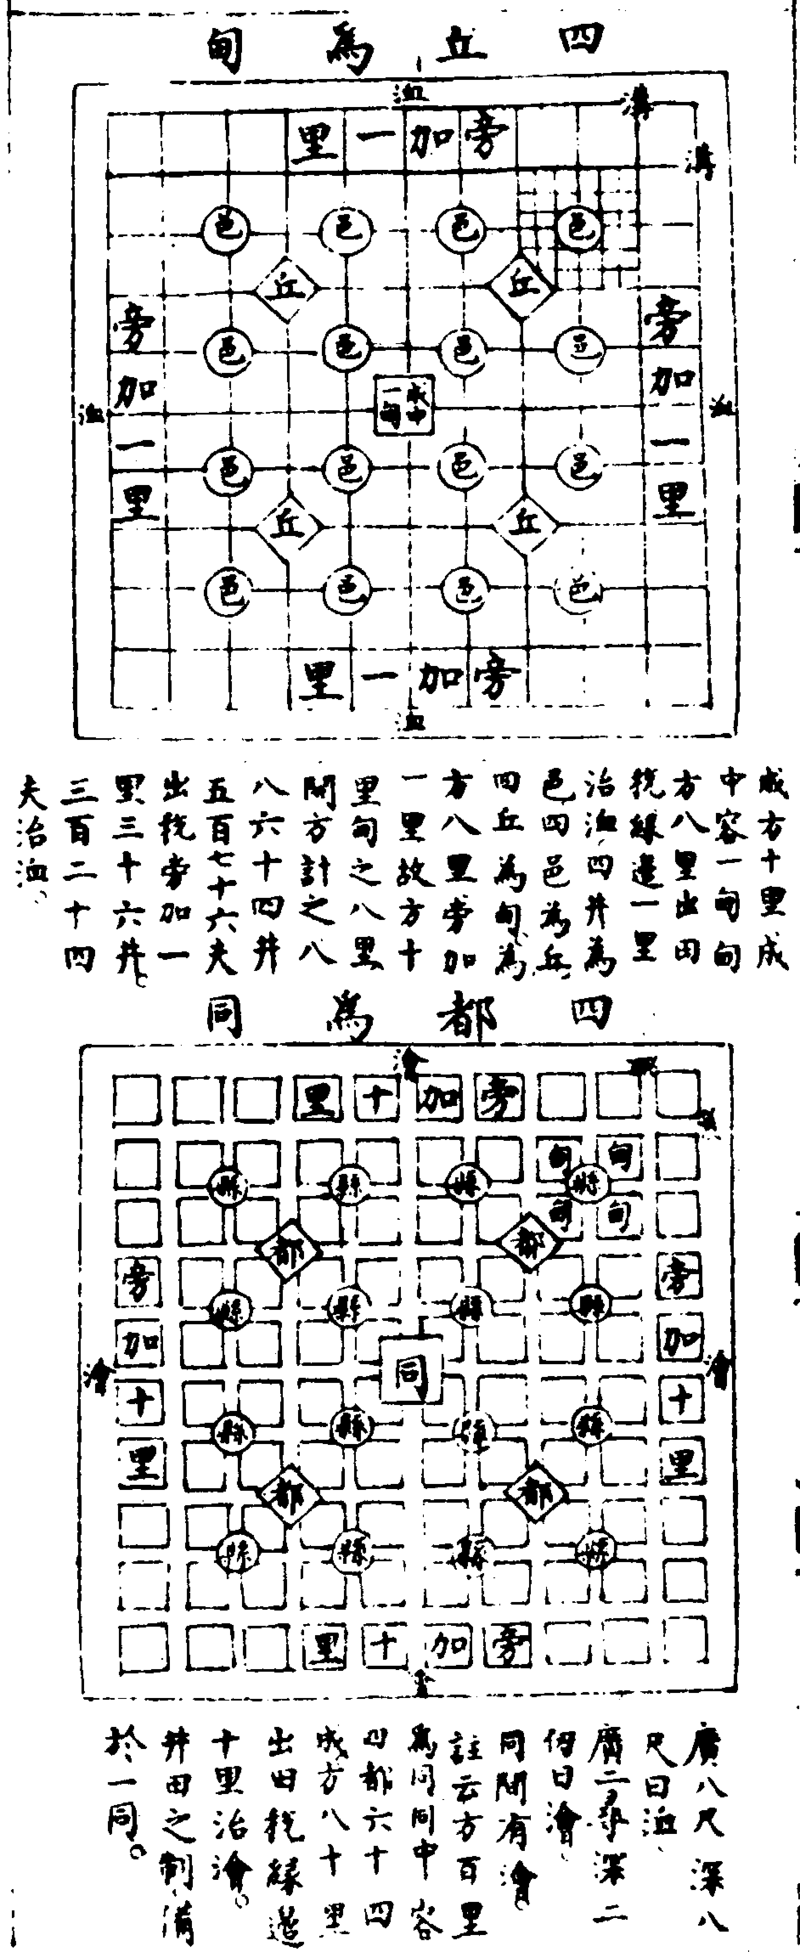 四丘為甸
洫
溝
旁加一里
溝
邑 邑 邑 邑
丘 丘
旁加一里
旁加一里
邑 邑 邑
洫
成中一甸
洫
邑 邑 邑 邑
丘 丘
邑 邑 邑 邑
旁加一里
洫
成方十里成
中容一甸甸
方八里出田
稅緣邊一里
治洫、四井為
邑四邑為丘
四丘為甸、為
方八里旁加
一里故方十
里甸之八里
開方計之八
八六十四井
五百七十六夫
出稅旁加一
里三十六井。
三百二十四
夫治洫、
四都為同
澮
旁加十里
甸 甸
縣 縣 縣 縣
甸 甸
都 都
旁加十里
旁加十里
縣 縣 縣 縣
同
澮
澮
縣 縣 縣 縣
都 都
縣 縣 縣 縣
旁加十里
廣八尺深八
尺曰洫、
廣二尋深二
仞曰澮、
同間有澮。
註云方百里
為同同中容
四都六十四
成方八十里
出田稅緣邊
十里治澮。
井田之制備
於一同。